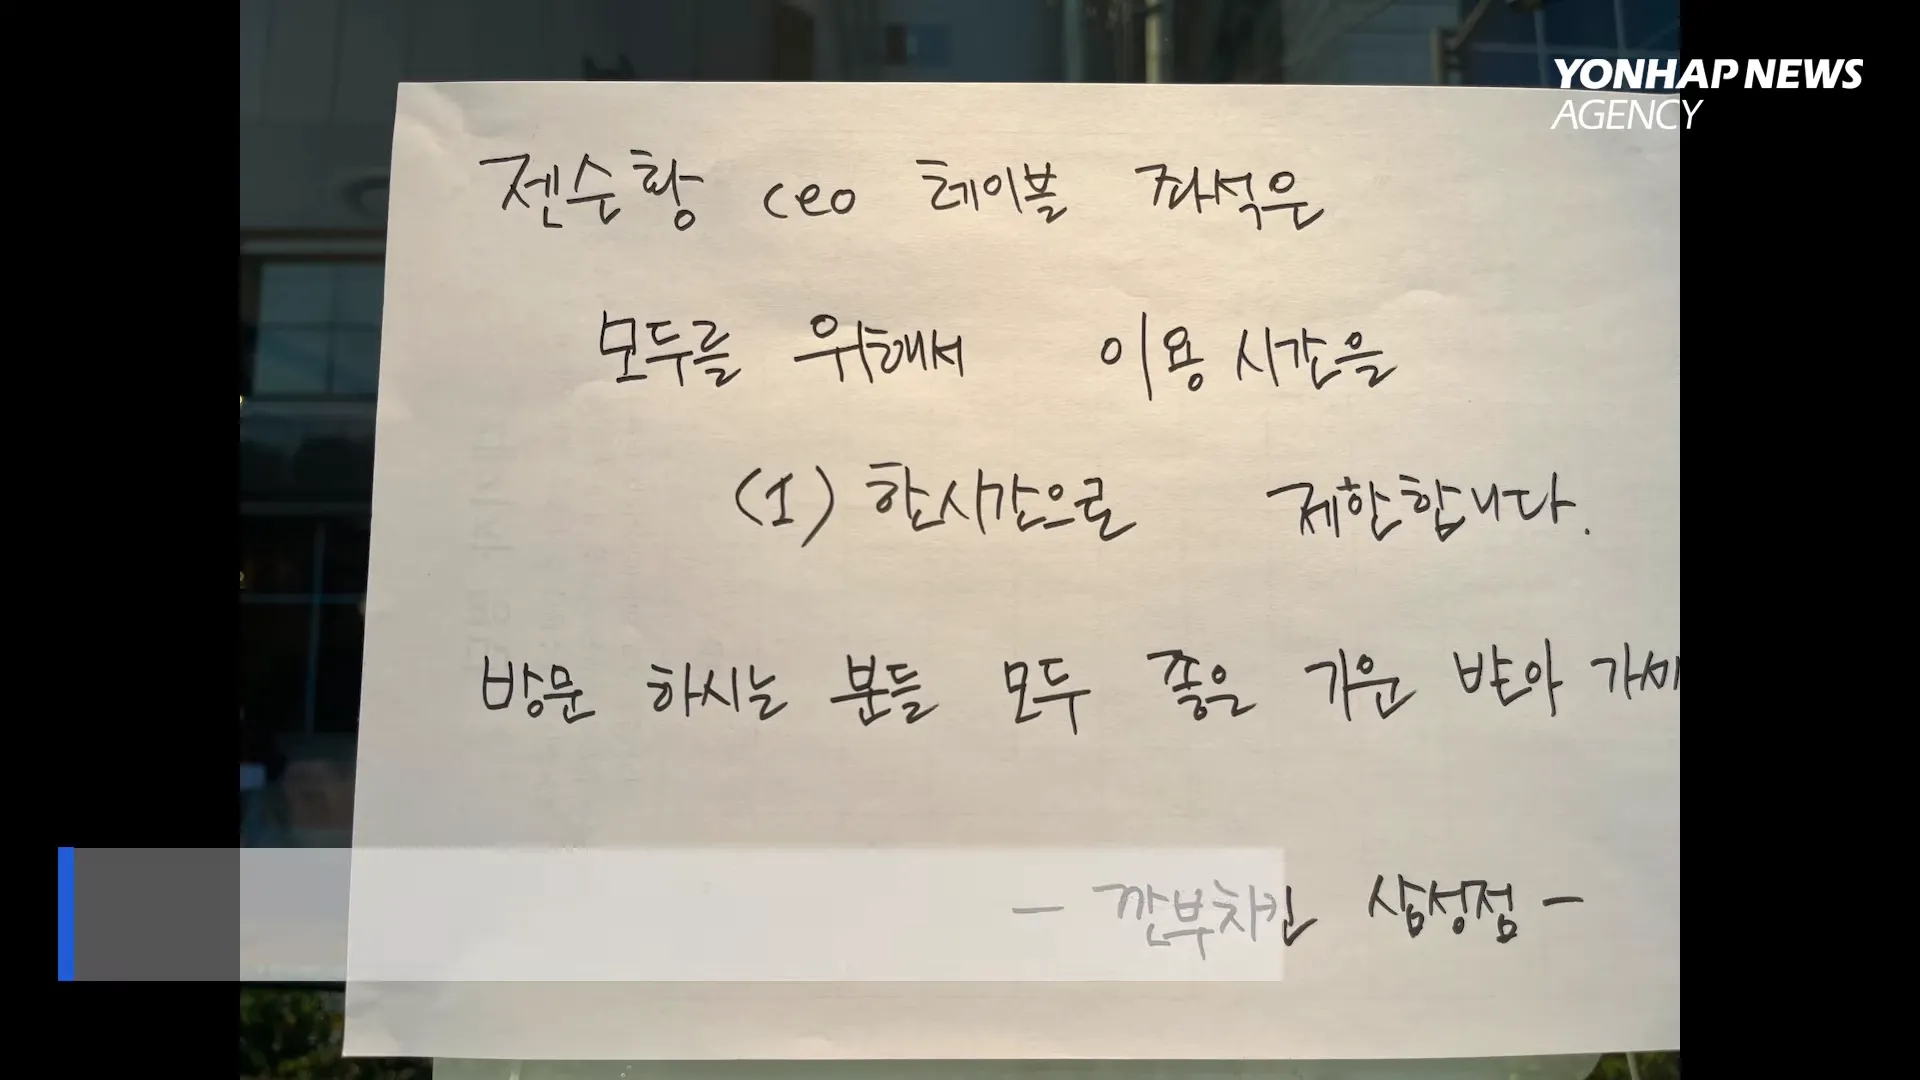 YONHAP NEWS
AGENCY
젠슨황 ceo 테이블 좌석은
모두를 위해서 이용 시간을
(1) 한시간으로 제한합니다.
방문 하시는 분들 모두 좋은 기운 받아 가세
- 깐부치킨 삼성점 -